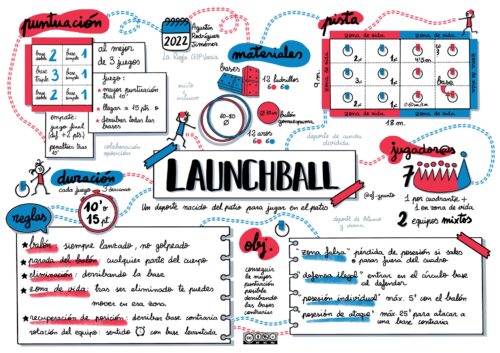 puntuación
base doble 2 base simple 1
base triple 3
base simple 1
al mejor
de 3 juegos
juego:
mayor puntuación
tras 10'
o
llegar a 15 pts. o
derribar todas las
bases
empate:
juego final
(4' + 2 pts)
penaltis tras
10'
2022
Agustín
Rodríguez
Jiménez
La Rioja CEIP Varia
materiales
bases
12 ladrillos
6 6
mixto
inclusivo
60-80
Ø
Ø 30cm
balón
gomaespuma
12 aros
6-6
colaboración
oposición
deporte de cancha
dividida
pista
zona de vida zona de vida
zona de vida zona de vida
9 m.
18 m.
base
LAUNCHBALL
Un deporte nacido del patio para jugar en el patio
deporte de blanco
y diana
jugador@s
7
1 por cuadrante +
1 en zona de vida
2 equipos mixtos
duración
cada juego 3 descansos
10' o
15 pt
reglas
balón siempre lanzado, no golpeado
parada del balón: cualquier parte del cuerpo
eliminación: derribando la base
zona de vida: tras ser eliminado te puedes
mover en esa zona
recuperación de posición: derribas base contraria
rotación del equipo: sentido con base levantada
obj.
conseguir
la mayor
puntuación
posible
derribando
las bases
contrarias
"zona falsa" pérdida de posesión si sales
o paras fuera del cuadro
"defensa ilegal" entrar en el círculo base
al defender
"posesión individual" máx. 5" con el balón
"posesión de ataque" máx 25" para atacar a
una base contraria